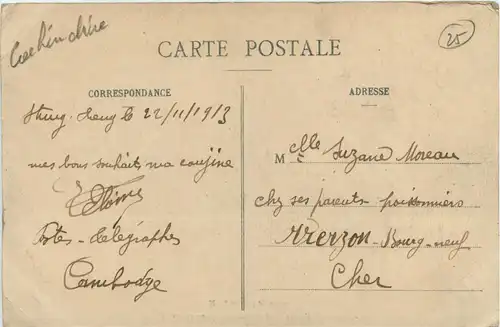 Cochinchine
25
CARTE POSTALE
CORRESPONDANCE
Stung-Treng le 22/11/1913
mes bons souhaits ma cousine
Postes-Télégraphes
Cambodge
ADRESSE
Melle Suzane Moreau
chez ses parents poissonniers
Vierzon-Bourg-neuf
Cher